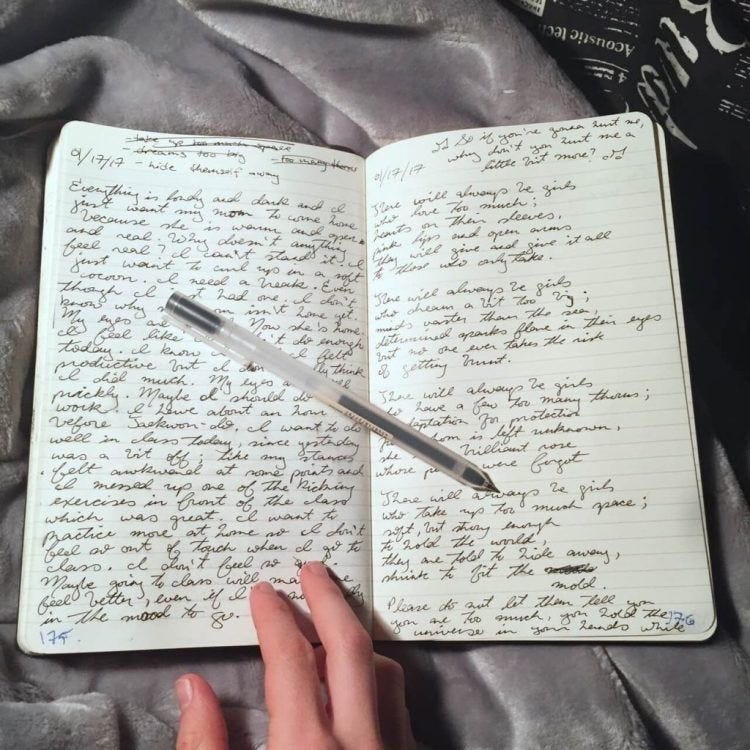 - take up too much space
- dreams too big
- too many thorns
01/17/17
- hide themself away
Everything is lonely and dark and I
just want my mom to come home
because she is warm and open
and real. Why doesn't anything
feel real? I can't stand it. I
just want to curl up in a soft
cocoon. I need a break. Even
though I just had one. I don't
know why mom isn't home yet.
My eyes are Now she's home.
I feel like I didn't do enough
today. I know I felt
productive but I don't really think
I did much. My eyes feel
prickly. Maybe I should do
work. I have about an hour
before Taekwon-do. I want to do
well in class today, since yesteday
was a bit off; like my stances
felt awkward at some points and
I messed up one of the kicking
exercises in front of the class
which was great. I want to
practice more at home so I don't
feel so out of touch when I go to
class. I don't feel so good.
Maybe going to class will make me
feel better, even if I'm not really
in the mood to go.
175
♫ So if you're gonna hurt me,
why don't you hurt me a
little bit more? ♫
01/17/17
There will always be girls
who love too much;
hearts on their sleeves,
pink lips and open arms
they will give and give it all
to those who only take.
There will always be girls
who dream a bit too big;
minds vaster than the sea,
determined sparks flare in their eyes
but no one ever takes the risk
of getting burnt.
There will always be girls
who have a few too many thorns;
adaptation for protection
from whom is left unknown,
she is a brilliant rose
whose petals were forgot
There will always be girls
who take up too much space;
soft, but strong enough
to hold the world,
they are told to hide away,
shrink to fit the
mold.
Please do not let them tell you
you are too much, you hold the
universe in your hands while
176
Acoustic tech